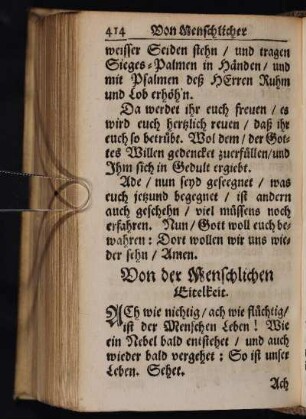 414 Von Menschlicher
weisser Seiden stehn / und tragen
Sieges-Palmen in Händen / und
mit Psalmen deß HErren Ruhm
und Lob erhöh'n.
Da werdet ihr euch freuen / es
wird euch hertzlich reuen / daß ihr
euch so betrübt. Wol dem / der Got-
tes Willen gedencket zuerfüllen/und
Ihm sich in Gedult ergiebt.
Ade / nun seyd gesegnet / was
euch jetzund begegnet / ist andern
auch geschehn / viel müssens noch
erfahren. Nun / Gott woll euch be-
wahren: Dort wollen wir uns wie-
der sehn / Amen.
Von der Menschlichen
Eitelkeit.
ACh wie nichtig / ach wie flüchtig /
ist der Menschen Leben! Wie
ein Nebel bald entstehet / und auch
wieder bald vergehet: So ist unser
Leben. Sehet.
Ach